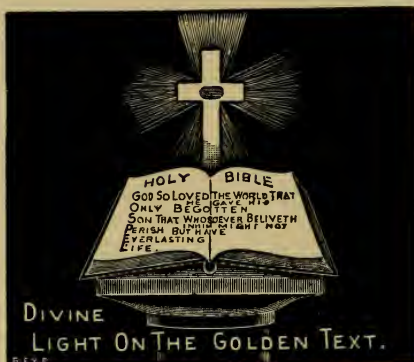 HOLY BIBLE
GOD SO LOVED THE WORLD THAT
HE GAVE HIS
ONLY BEGOTTEN
SON THAT WHOSOEVER BELIVETH
IN HIM MIGHT NOT
PERISH BUT HAVE
EVERLASTING
LIFE.
DIVINE
LIGHT ON THE GOLDEN TEXT.